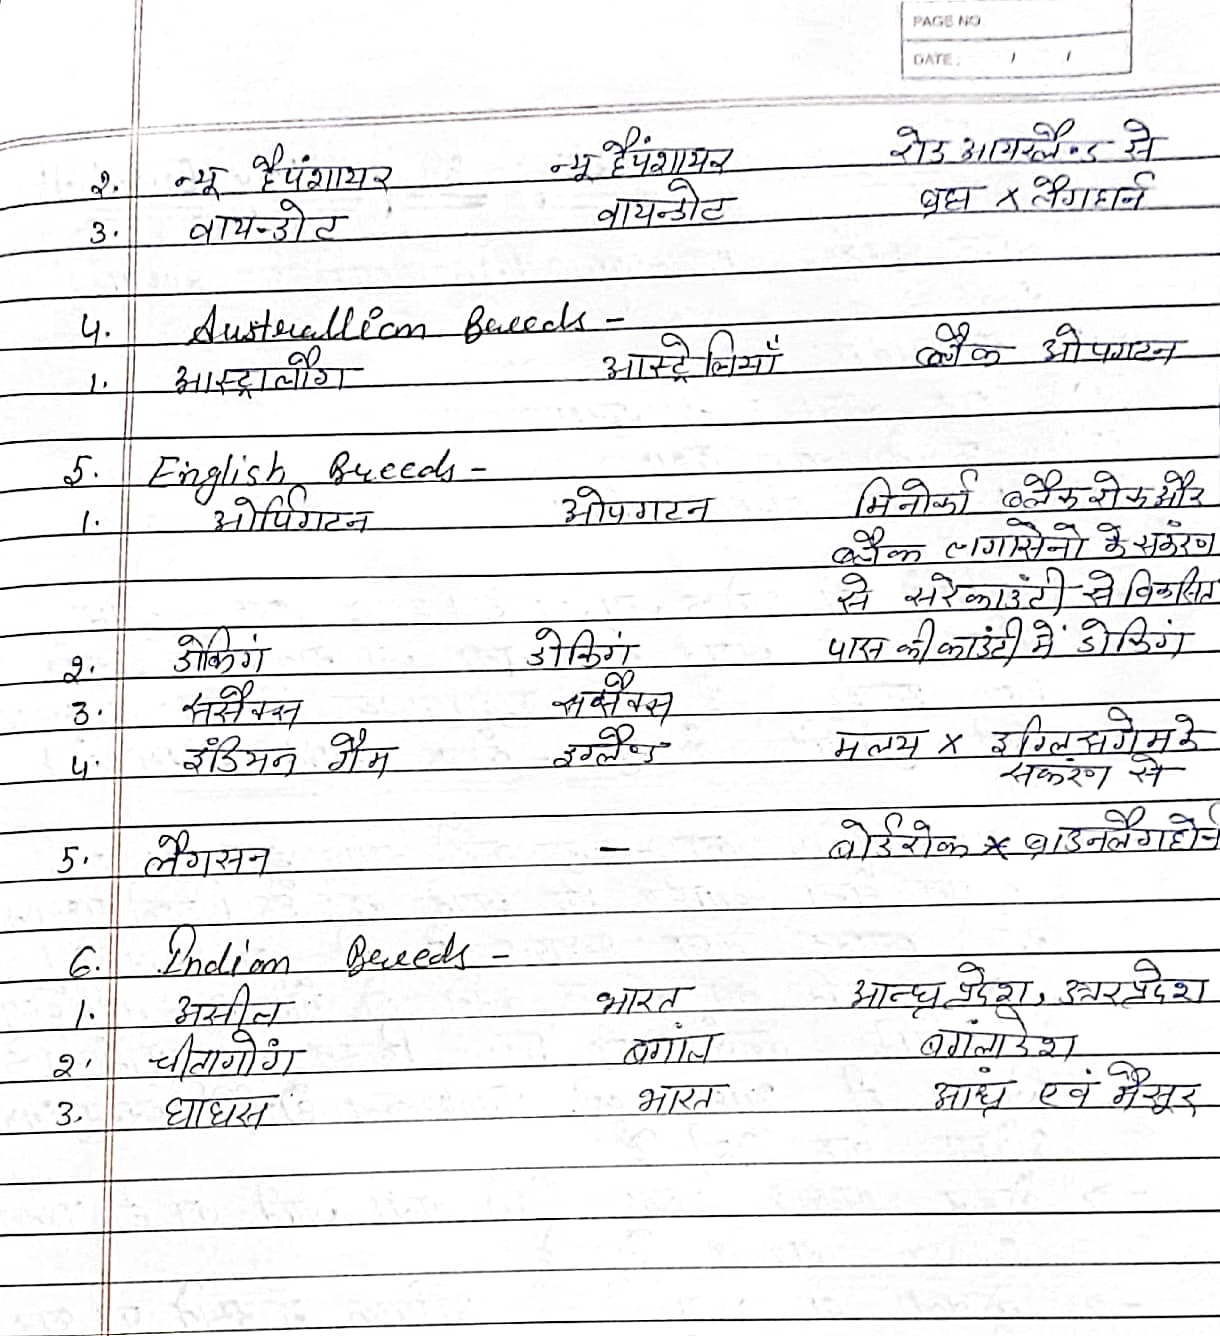 PAGE NO.
DATE: / /
2. न्यू हैपंशायर न्यू हैपंशायर रोड आयरलैन्ड से
3. वायन्डोट वायन्डोट ब्रह्म x लैगहार्न
4. Australlian Breeds -
1. आस्ट्रालौग आस्ट्रेलियाँ ब्लैक ओपगटन
5. English Breeds -
1. ओर्पिगटन ओपगटन मिनोर्का ब्लैक रोक और
ब्लैक लगासेनो के सकंरण
से सरे काउंटी से विकसित
2. डोकिगं डोकिगं पास की काउंटी में डोकिगं
3. ससैक्स ससैक्स
4. इंडियन गैम इग्लैण्ड मलय x इग्लिसगेम के
सकंरण से
5. लैगसन - बोर्डरोक x ब्राउनलैगहोर्न
6. Indian Breeds -
1. असील भारत आन्ध्र प्रदेश, उत्तर प्रदेश
2. चीतागोंग बगांल बगंलादेश
3. घाघस भारत आंध्र एवं मैसूर